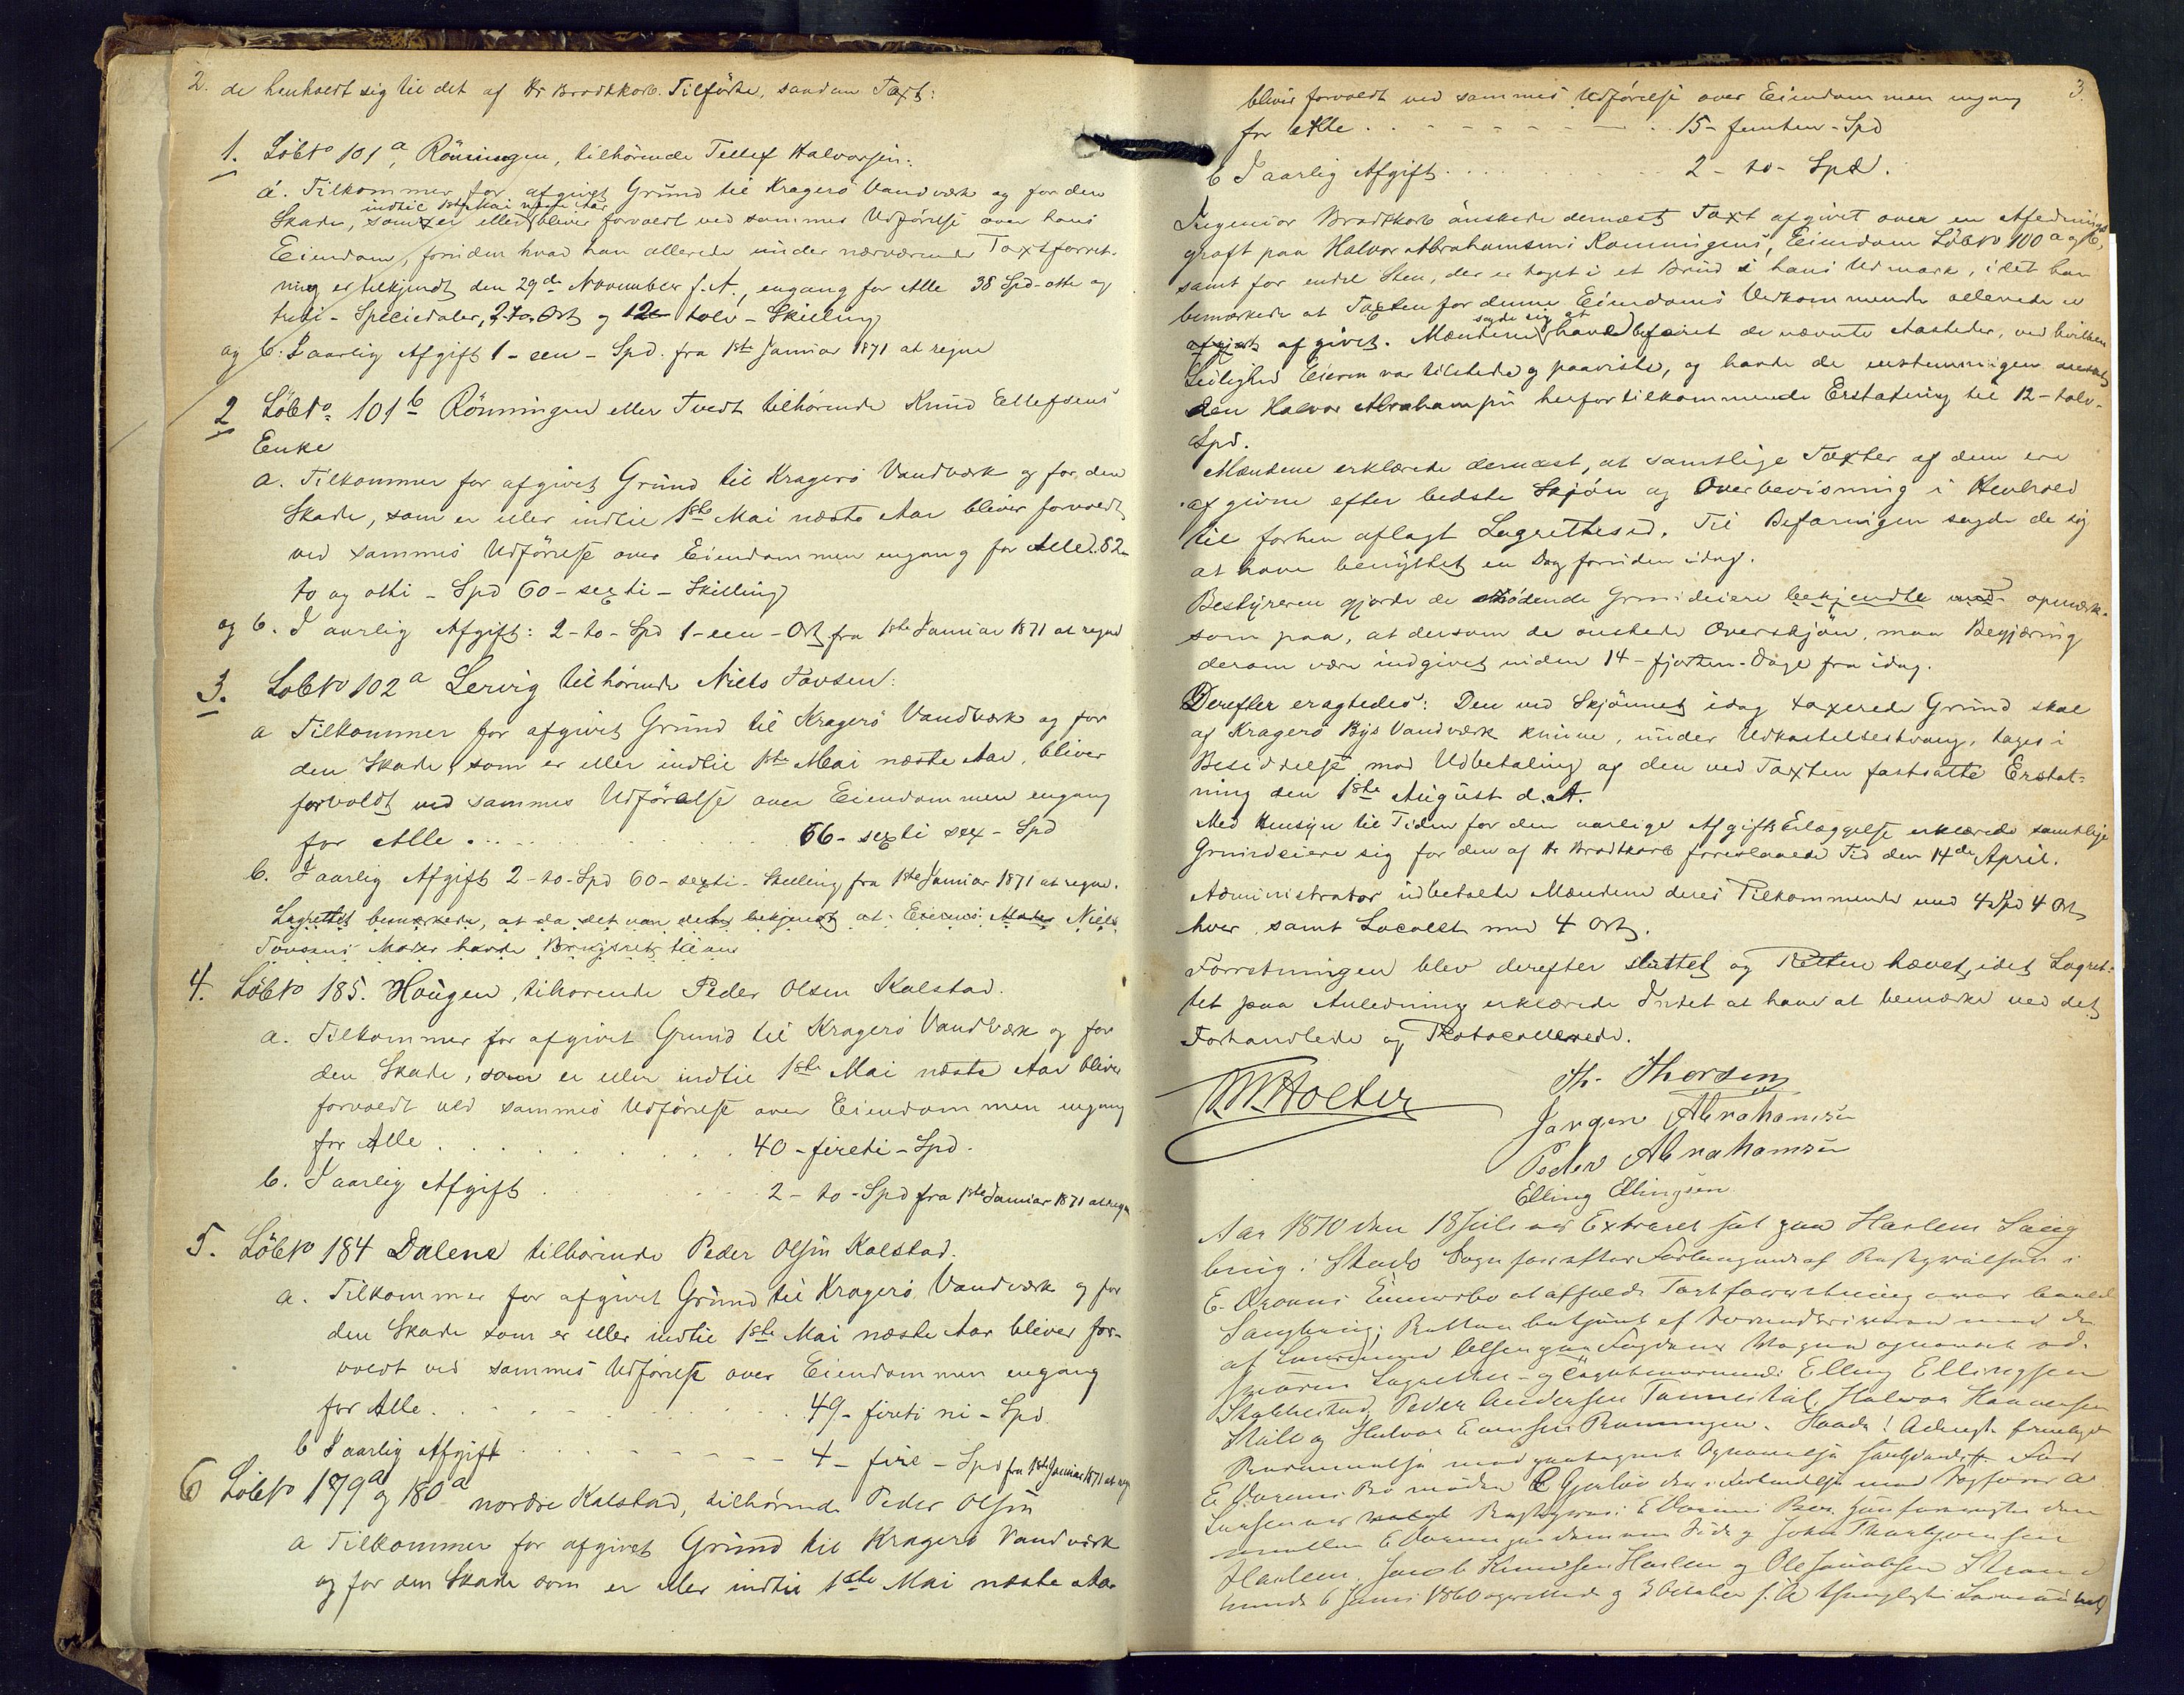 2. de henholdt sig til det af Hr Brodtkorb Tilförte, saadan Taxt:
1. LöbNo 101a, Rönningen, tilhörende Tellef Halvorsen:
a. Tilkommer for afgivet Grund til Kragerö Vandværk og for den
indtil 1ste Mai næste Aar
Skade, som er eller bliver forvoldt ved sammes Udförelse over hans
Eiendom, foruden hvad han allerede under nærværende Taxtforret-
ning er tilkjendt den 29de November f. A., engang for Alle 38 Spd-otte og
treti-Speciedaler, 2-to Ort og 12 tolv-Skilling
og b. I aarlig Afgift 1-een-Spd. fra 1ste Januar 1871 at regne
2 LöbNo. 101b Rönningen eller Tvedt tilhörende Knud Ellefsens
Enke
a. Tilkommer for afgivet Grund til Kragerö Vandværk og for den
Skade, som er eller indtil 1ste Mai næste Aar bliver forvoldt
ved sammes Udförelse over Eiendommen engang for Alle. 82-
to og otti-Spd 60-sexti-Skilling
og b. I aarlig Afgift: 2-to-Spd 1-een-Ort fra 1ste Januar 1871 at regne
3. LöbNo 102a Lervig tilhörende Niels Tovsen:
a Tilkommer for afgivet Grund til Kragerö Vandværk og for
den Skade, som er eller indtil 1ste Mai næste Aar, bliver
forvoldt ved sammes Udförelse over Eiendommen engang
for Alle . . . 66-sexti sex-Spd
b. I aarlig Afgift 2-to-Spd 60-sexti-Skilling fra 1ste Januar 1871 at regne.
Lagrettet bemærkede, at da det var dets bekjendt at Eierens Moder Niels
Tovsens Moder havde Brugsret til
4. LöbNo 185. Hougen, tilhörende Peder Olsen Kalstad.
a. Tilkommer for afgivet Grund til Kragerö Vandværk og for
den Skade, som er eller indtil 1ste Mai næste Aar bliver
forvoldt ved sammes Udförelse over Eiendommen engang
for Alle . . . 40-fireti-Spd.
b. I aarlig Afgift . . . 2-to-Spd fra 1ste Januar 1871 at regne
5. LöbNo 184 Dalene tilhörende Peder Olsen Kalstad.
a. Tilkommer for afgivet Grund til Kragerö Vandværk og for
den Skade som er eller indtil 1ste Mai næste Aar bliver for-
voldt ved sammes Udförelse over Eiendommen engang
for Alle . . . 49-fireti ni-Spd
b I aarlig Afgift . . . 4-fire-Spd fra 1ste Januar 1871 at reg
6 LöbNo 179a og 180a nordre Kalstad, tilhörende Peder Olsen
a Tilkommer for afgivet Grund til Kragerö Vandværk
og for den Skade som er eller indtil 1ste Mai næste Aar
3.
bliver forvoldt ved sammes Udförelse over Eiendommen engang
for Alle . . . 15-femten-Spd
b I aarlig Afgift . . . 2-to-Spd.
Ingeniör Brodtkorb önskede dernæst Taxt afgivet over en Aflednings
gröft paa Halvor Abrahamsens Rönningens, Eiendom LöbNo 100a og b,
samt for endel Sten, der er taget i et Brud i hans Udmark, idet han
bemærkede at Taxten for denne Eiendoms Vedkommende allerede er
sagde sig at
afgivet. Mændene have befaret de nævnte Aasteder, ved hvilken
Leilighed Eieren var tilstede og paaviste, og havde de enstemmigen ansat
den Halvor Abrahamsen herfor tilkommende Erstatning til 12-tolv-
Spd.
Mændene erklærede dernæst, at samtlige Taxter af dem ere
afgivne efter bedste Skjön og Overbevisning i Henhold
til forhen aflagt Lagrettesed. Til Befaringen sagde de sig
at have benyttet en Dag foruden idag.
Bestyreren gjorde de mödende Grundeiere bekjendte med opmærk-
som paa, at dersom de önskede Overskjön, maa Begjæring
derom være indgivet inden 14-fjorten-Dage fra idag.
Derefter eragtedes: Den ved Skjönnet idag taxerede Grund skal
af Kragerö Bys Vandværk kunne, under Udkastelsestvang, tages i
Besiddelse mod Udbetaling af den ved Taxten fastsatte Erstat-
ning den 1ste August d. A.
Med Hensyn til Tiden for den aarlige Afgifts Erlæggelse erklærede samtlige
Grundeiere sig for den af Hr Brodtkorb foreslaaede Tid den 14de April.
Administrator udbetalte Mændene deres Tilkommende med 4 Spd 4 Ort
hver, samt Localet med 4 Ort.
Forretningen blev derefter sluttet og Retten hævet, idet Lagret-
tet paa Anledning erklærede Intet at have at bemærke ved det
Forhandlede og Protocollerede.
Holter
Th. Thorsen
Jörgen Abrahamsen
Peder Abrahamsen
Elling Ellingsen
Aar 1870 den 18 Juli var Extraret sat paa Haslem Saug
brug i Skaado Sogn for efter Forlangende af Bestyrelsen i
E. Börresens at afholde Taxtforretning over
Saugbrug; Retten betjent af Sorenskriveren med de
af Lensmand Olsen paa Fogdens Vegne opnævnte
Lagrettes- og Elling Ellingsen
Stabbestad, Peder Andersen Halvor
og Halvor Rönningen. Hvorda! Administ. fremlagt
med paategnet Opnævnelse
E. Bo mödte
og John Thorbjörnsen
Haslem. Jacob Knudsen Haslem og Ole Jacobsen
6 Juni 1860 og 3 October f. A